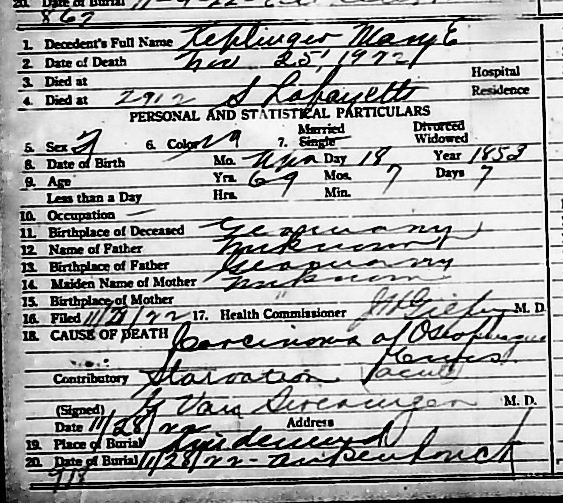 20. Date of Burial 11-9-22
862
1. Decedent's Full Name Keplinger Mary E
2. Date of Death Nov 25, 1922
3. Died at Hospital
4. Died at 2912 S Lafayette Residence
PERSONAL AND STATISTICAL PARTICULARS
5. Sex F 6. Color W 7. Married Single Divorced Widowed
8. Date of Birth Mo. Day 18 Year 1853
9. Age Yrs. 69 Mos. 7 Days 7
Less than a Day Hrs. Min.
10. Occupation —
11. Birthplace of Deceased Germany
12. Name of Father Unknown
13. Birthplace of Father Germany
14. Maiden Name of Mother Unknown
15. Birthplace of Mother "
16. Filed 11/28/22 17. Health Commissioner M. D.
18. CAUSE OF DEATH Carcinoma of Oesophagus
Contributory Starvation
(Signed) J Van Sweringen M. D.
Date 11/28/22 Address
19. Place of Burial Lindenwood
20. Date of Burial 11/28/22 - Ankenbruck